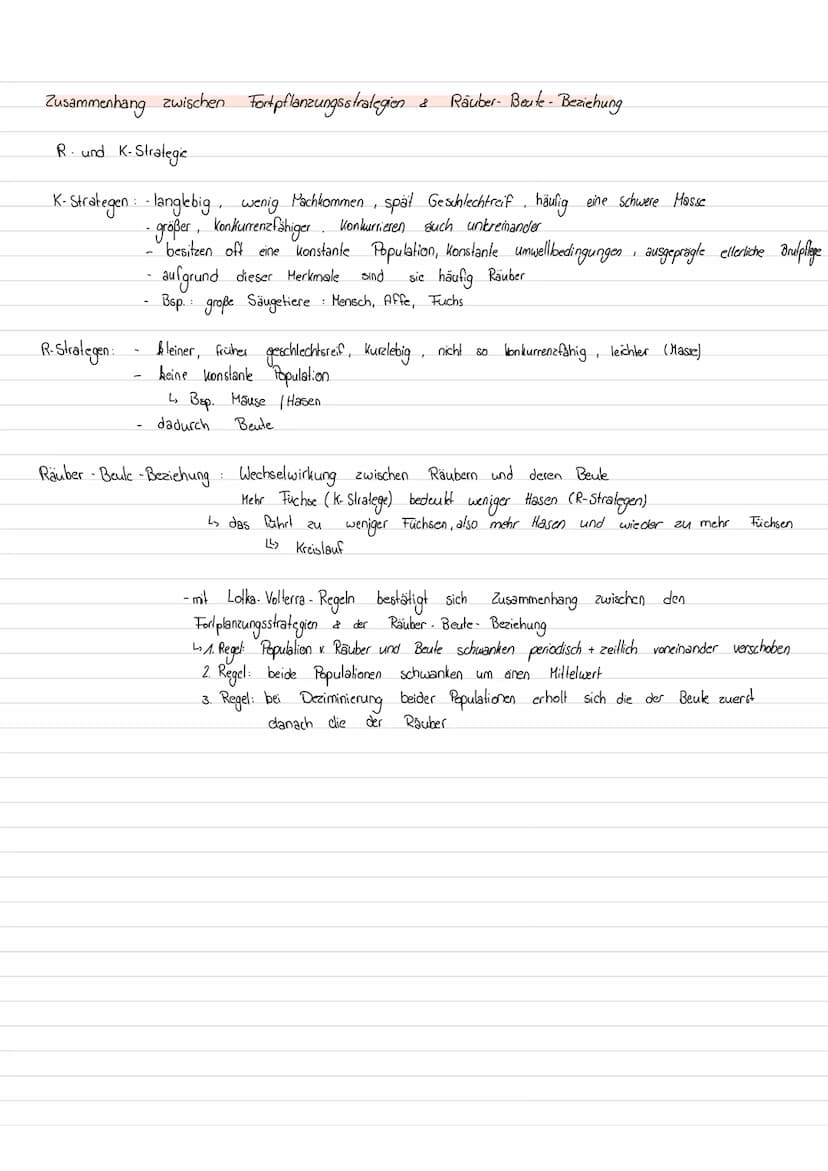 Zusammenhang zwischen Fortpflanzungsstrategien & Räuber-Beute-Beziehung
R- und K-Strategie
K-Strategen: - langlebig, wenig Nachkommen, spät Geschlechtreif, häufig eine schwere Masse
- größer, konkurrenzfähiger. Konkurrieren auch untereinander
- besitzen oft eine konstante Population, konstante umweltbedingungen, ausgeprägte elterliche Brutpflege
- aufgrund dieser Merkmale sind sie häufig Räuber
- Bsp.: große Säugetiere: Mensch, Affe, Fuchs
R-Strategen: - kleiner, früher geschlechtsreif, kurzlebig, nicht so konkurrenzfähig, leichter (Masse)
- keine konstante Population
↳ Bsp. Mäuse / Hasen
- dadurch Beute
Räuber-Beute-Beziehung: Wechselwirkung zwischen Räubern und deren Beute
Mehr Füchse (K-Stratege) bedeutet weniger Hasen (R-Strategen)
↳ das führt zu weniger Füchsen, also mehr Hasen und wieder zu mehr Füchsen
↳ Kreislauf
- mit Lotka-Volterra-Regeln bestätigt sich Zusammenhang zwischen den
Fortplanzungsstrategien & der Räuber-Beute-Beziehung
↳ 1. Regel: Population v. Räuber und Beute schwanken periodisch + zeitlich voneinander verschoben
2. Regel: beide Populationen schwanken um einen Mittelwert
3. Regel: bei Deziminierung beider Populationen erholt sich die der Beute zuerst
danach die der Räuber